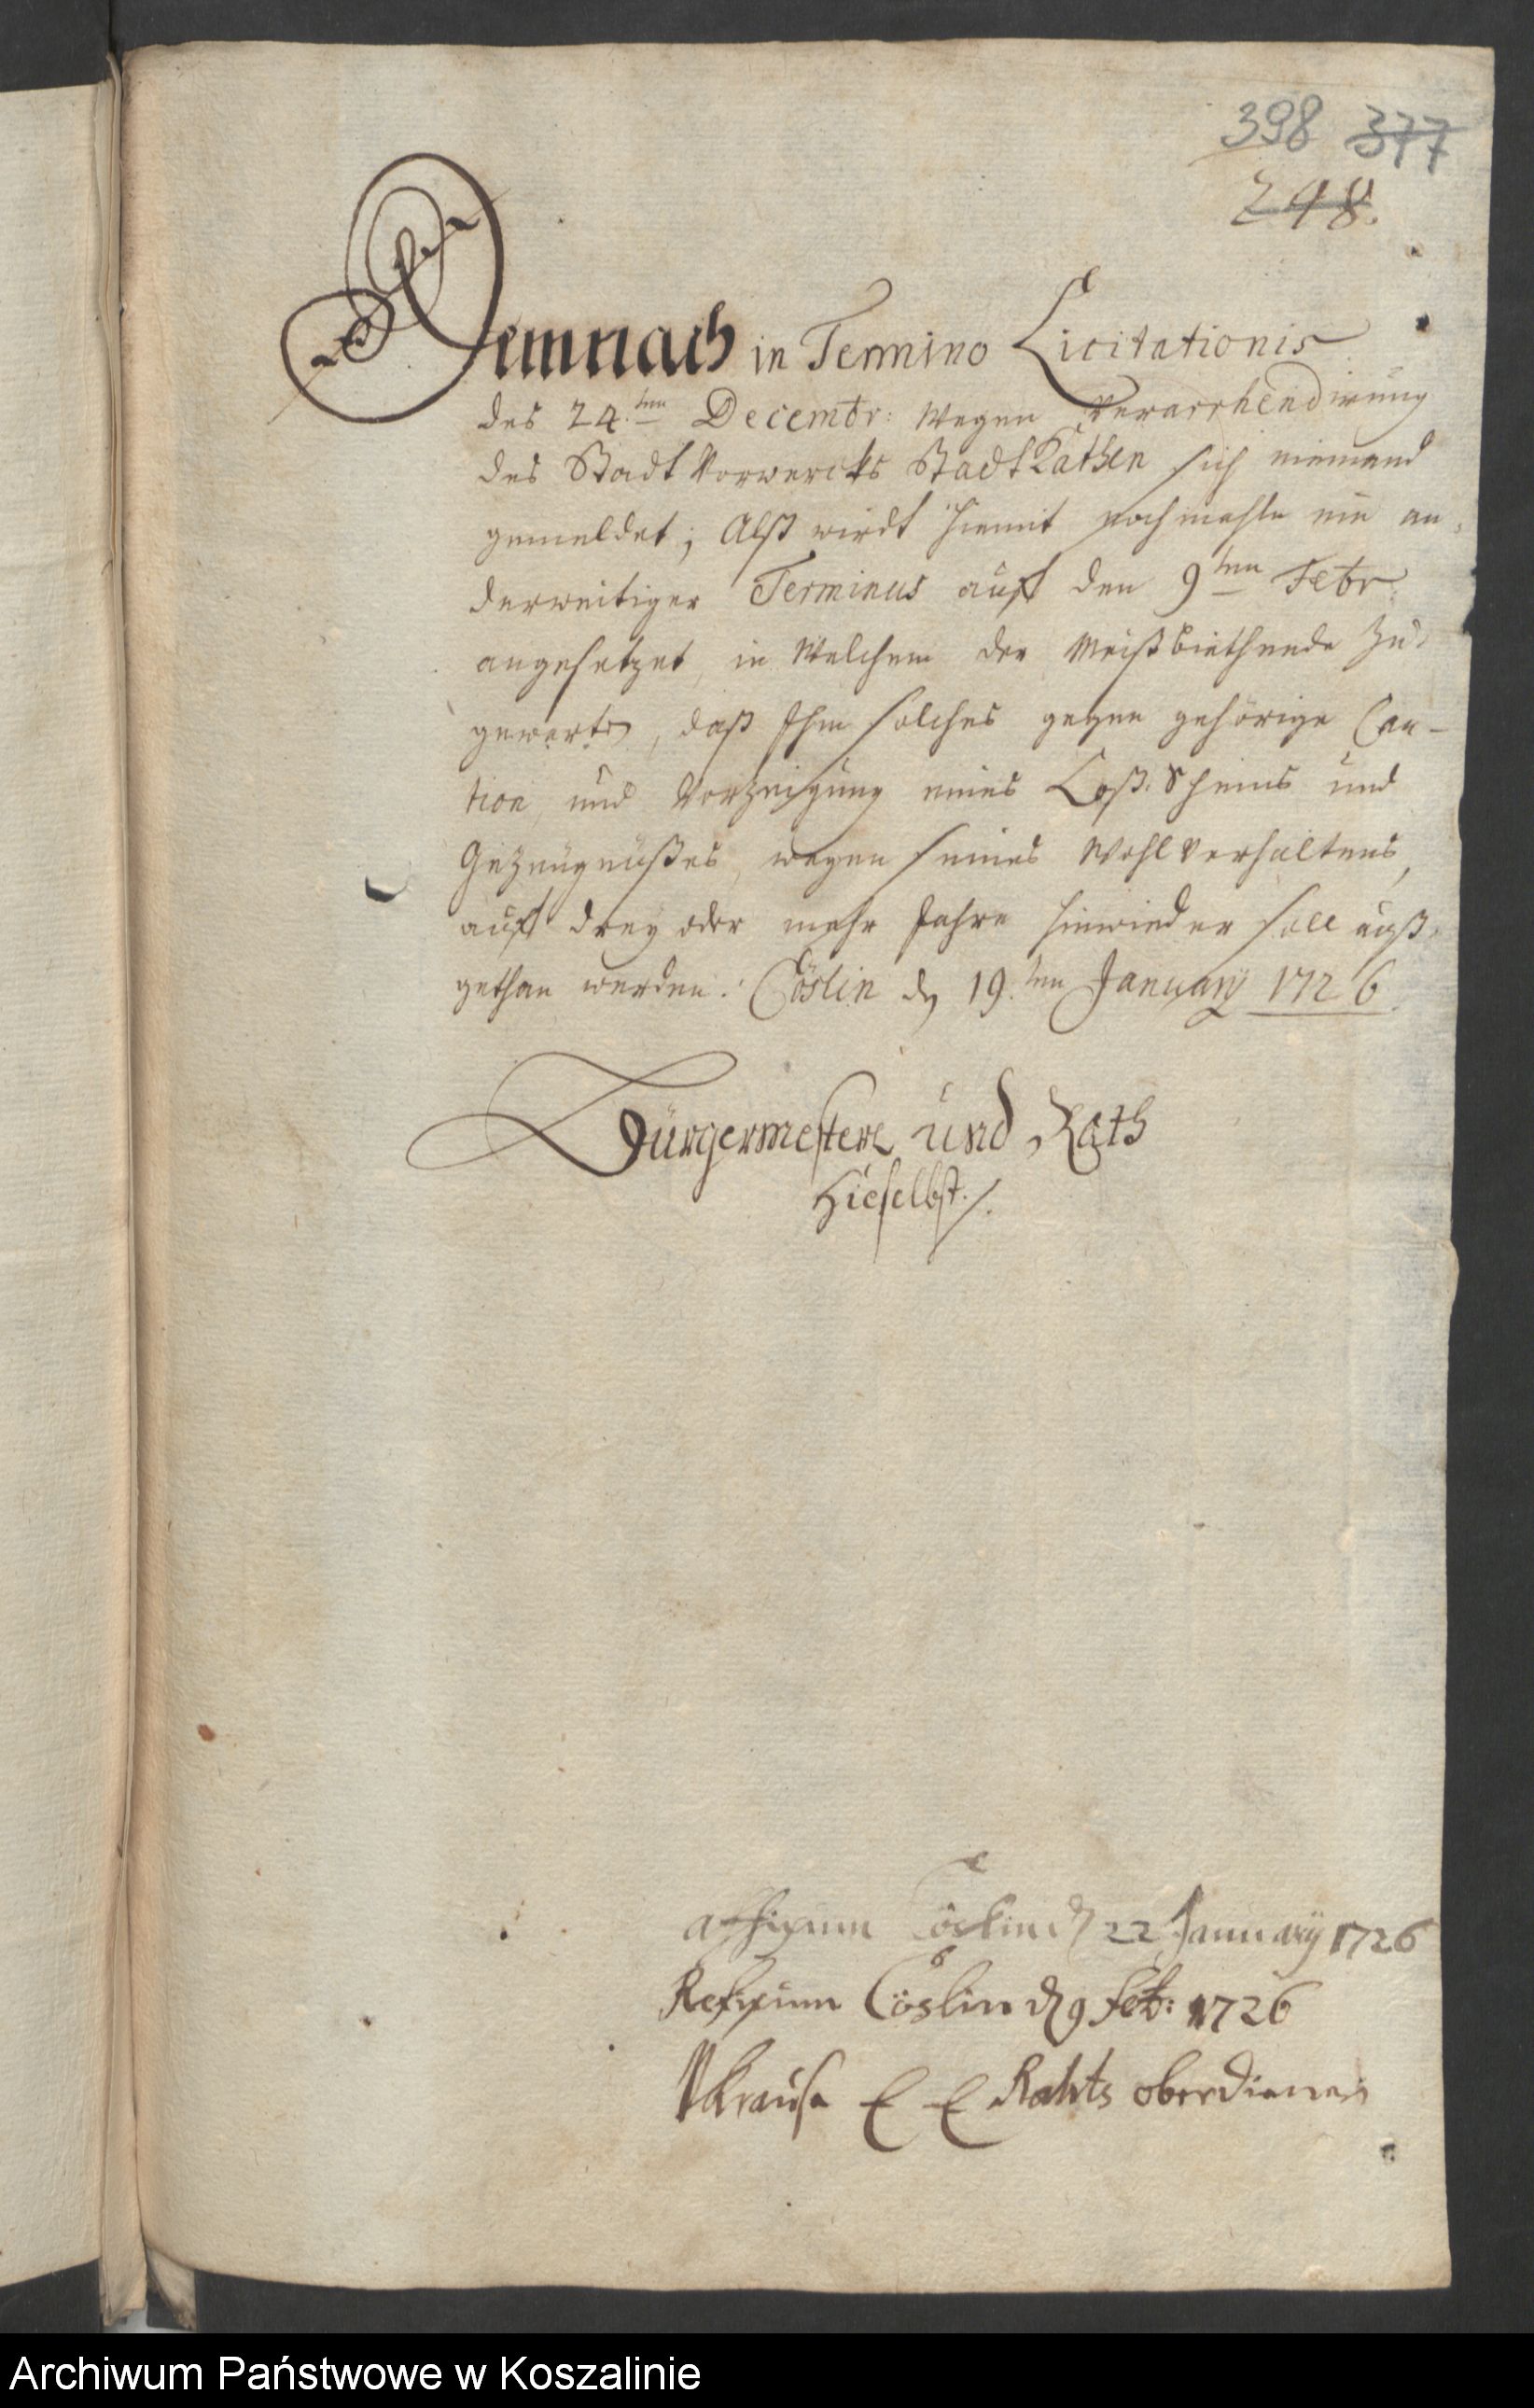 398 377
248.
Demnach in Termino Licitationis
des 24.ten Decembr: wegen Verarrhendirung
des Stadt Vorwercks StadtKathen sich niemand
gemeldet; Alß wirdt hiemit nochmahls ein an-
derweitiger Terminus auff den 9ten Febr.
angesetzet, in Welchem der Meistbiethende zu
gewarten, daß Ihm solches gegen gehörige Cau-
tion, und Vorzeigung eines Loß-Scheins und
Gezeugnüßes, wegen seines Wohlverhaltens,
auff drey oder mehr Jahre hinwieder soll auß-
gethan werden. Cöslin d 19.ten January 1726.
Bürgermestere und Rath
Hieselbst./.
affixum Cöslin d 22 January 1726
Refixum Cöslin d 9 Feb: 1726
Krause E E Rahts oberdiener
Archiwum Państwowe w Koszalinie